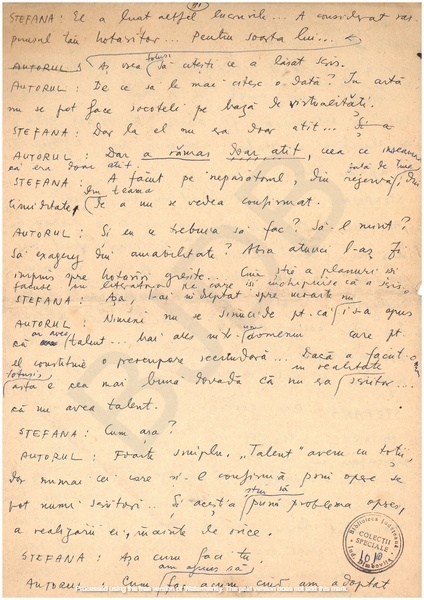 ȘTEFANA: El a luat altfel lucrurile... A considerat răs-
punsul tău hotărîtor... Pentru soarta lui...
AUTORUL: Aș vrea totuși să citești ce a lăsat scris.
AUTORUL: De ce să le mai citesc o dată? În artă
nu se pot face socoteli pe bază de virtualități.
ȘTEFANA: Dar la el nu era doar atît...
AUTORUL: Dar a rămas doar atît, ceea ce înseamnă
că era doar atît.
ȘTEFANA: A făcut pe nepăsătorul, din rezervă, din
timiditate, din teama de a nu se vedea confirmat.
AUTORUL: Și eu ce trebuia să fac? Să-l mint?
Să exagerez din amabilitate? Abia atunci l-aș fi
împins spre hotărîri greșite... Cine știe ce planuri își
făcuse în literatură pe care își închipuise că a scris.
ȘTEFANA: Așa, l-ai îndreptat spre moarte
AUTORUL: Nimeni nu se sinucide pt. că i s-a spus
că nu are talent... mai ales într-un domeniu care pt.
el constituie o preocupare secundară... Dacă a făcut-o
totuși, asta e cea mai bună dovadă că nu era în realitate scriitor...
că nu avea talent.
ȘTEFANA: Cum așa?
AUTORUL: Foarte simplu. „Talent" avem cu toții,
dar numai cei care și-l confirmă prin opere se
pot numi scriitori... Și aceștia știu să pună problema operei,
a realizării ei, înainte de orice.
ȘTEFANA: Așa cum faci tu,
AUTORUL: Cum am apucat să fac acum, cînd am adoptat
Biblioteca Județeană
COLECȚII
SPECIALE
Jud. Dîmbovița